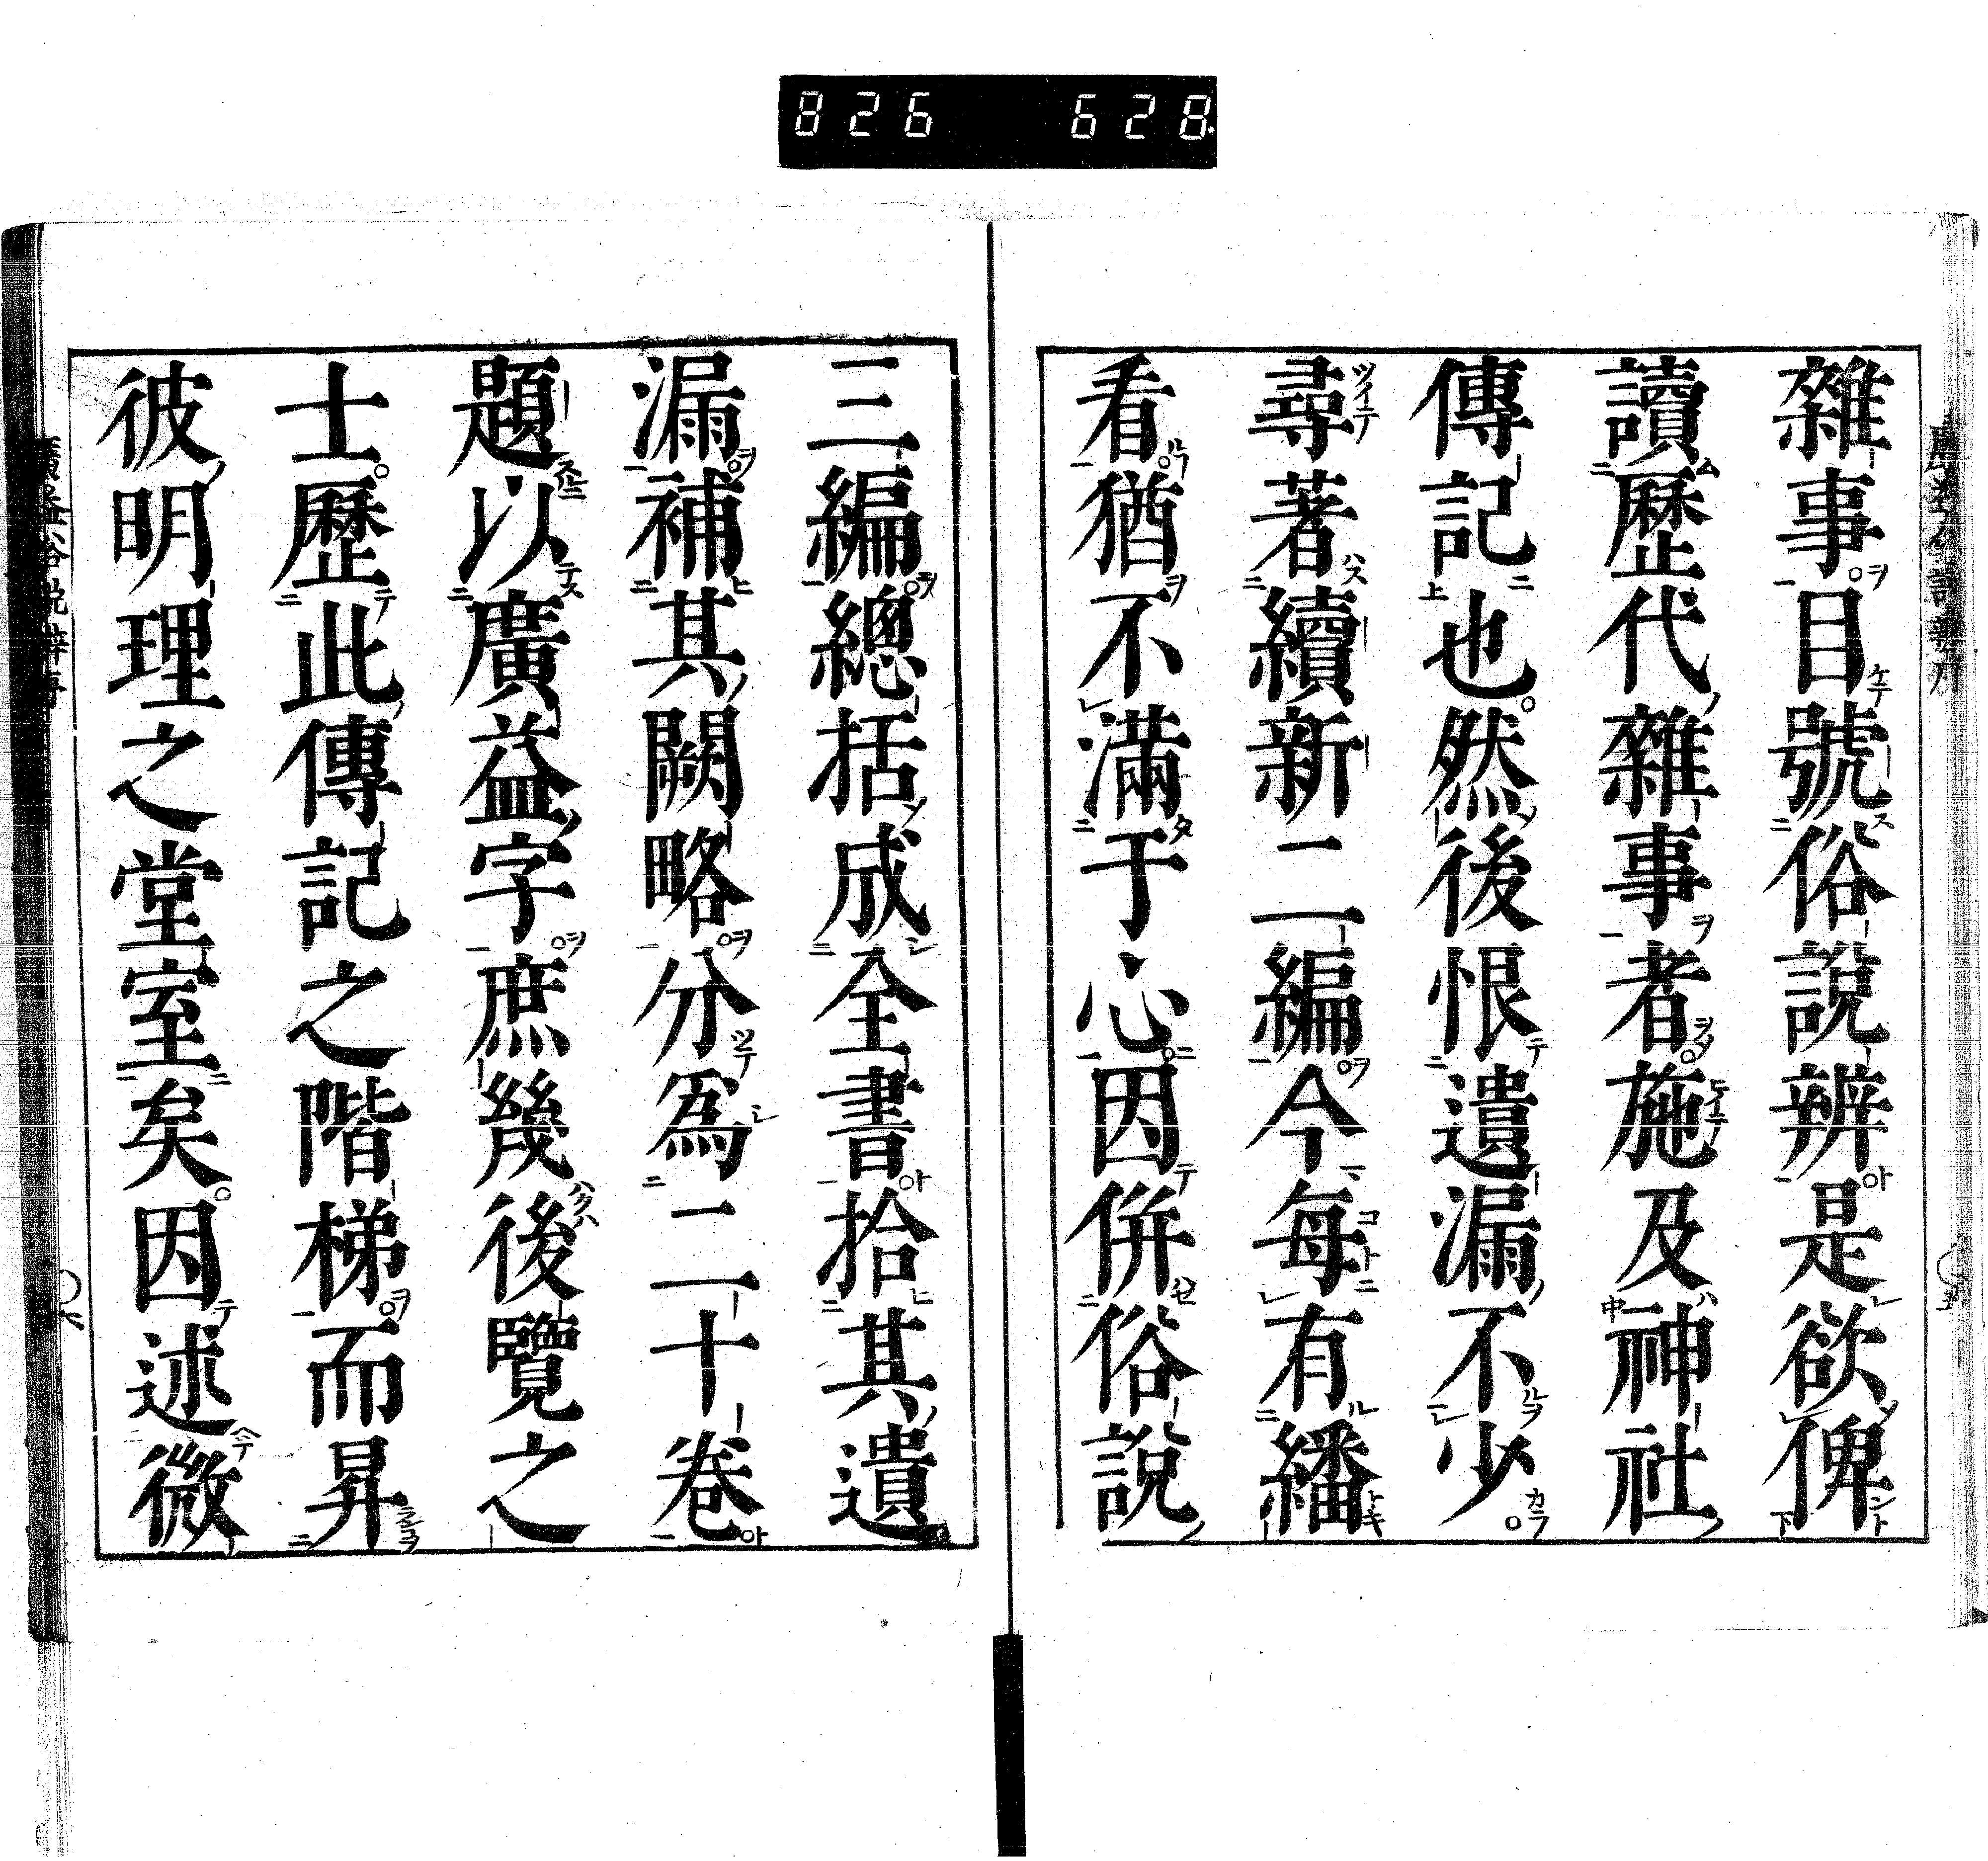 826 628
雜事目號俗說辨是欲俾
讀歷代雜事者施及神社
傳記也然後恨遺漏不少
尋著續新二編今每有繙
看猶不滿于心因併俗說
三編總括成全書拾其遺
漏補其闕略分爲二十卷
題以廣益字庶幾後覽之
士歷此傳記之階梯而昇
彼明理之堂室矣因述微